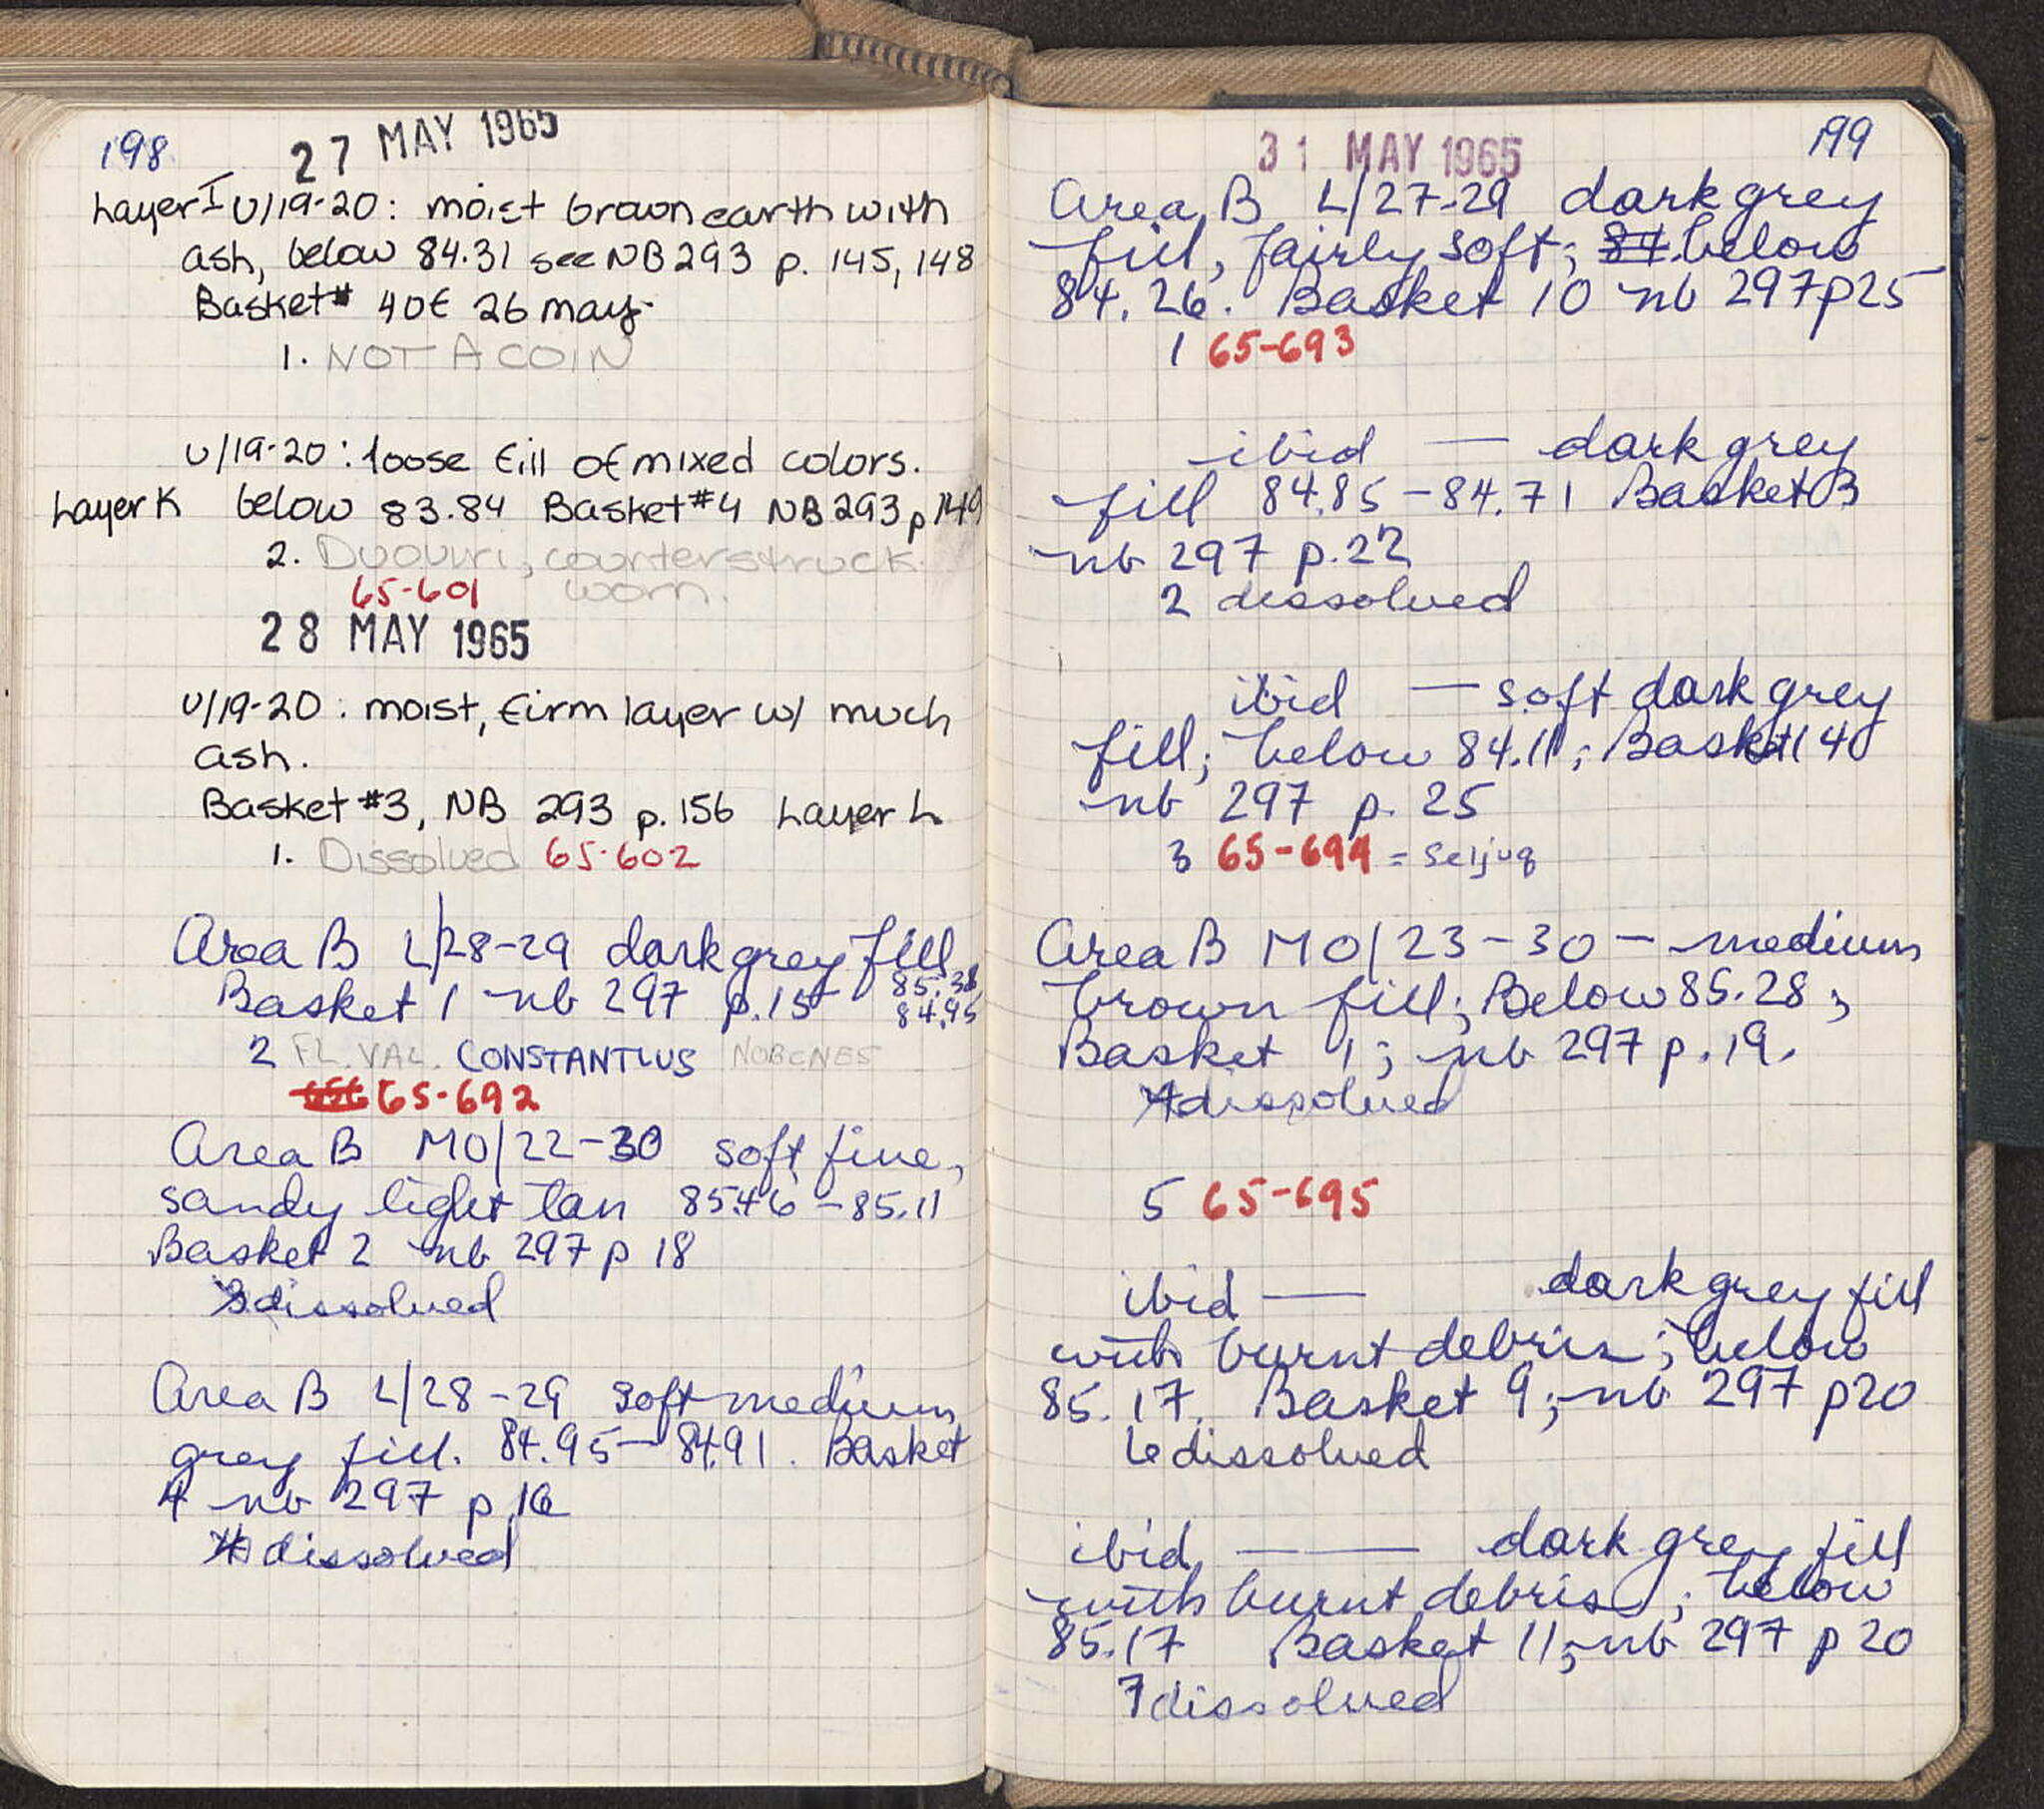 198
27 MAY 1965
Layer I U/19-20: moist brown earth with
ash, below 84.31 see NB 293 p. 145, 148
Basket # 40E 26 may
1. NOT A COIN
U/19-20: loose fill of mixed colors.
Layer K below 83.84 Basket #4 NB 293 p 149
2. Duoviri, counterstruck.
65-601 worn.
28 MAY 1965
U/19-20: moist, firm layer w/ much
ash.
Basket #3, NB 293 p. 156 Layer L
1. Dissolved 65-602
Area B L/28-29 dark grey fill
Basket 1 nb 297 p. 15 85.38
84.95
2 FL. VAL. CONSTANTIUS NOBCNES
65-692
Area B MO/22-30 soft fine,
sandy light tan 85.46 - 85.11
Basket 2 nb 297 p 18
3 dissolved
Area B L/28-29 soft medium
grey fill. 84.95 - 84.91. Basket
4 nb 297 p. 16
dissolved
199
31 MAY 1965
Area B L/27-29 dark grey
fill, fairly soft; 84 below
84.26. Basket 10 nb 297 p25
1 65-693
ibid — dark grey
fill 84.85 - 84.71 Basket 3
nb 297 p. 22
2 dissolved
ibid — soft dark grey
fill; below 84.11; Basket 40
nb 297 p. 25
3 65-694 = Seljuq
Area B MO/23-30 - medium
brown fill; Below 85.28;
Basket 1; nb 297 p. 19.
4 dissolved
5 65-695
ibid — dark grey fill
with burnt debris; below
85.17. Basket 9; nb 297 p20
6 dissolved
ibid — dark grey fill
with burnt debris; below
85.17 Basket 11; nb 297 p 20
7 dissolved